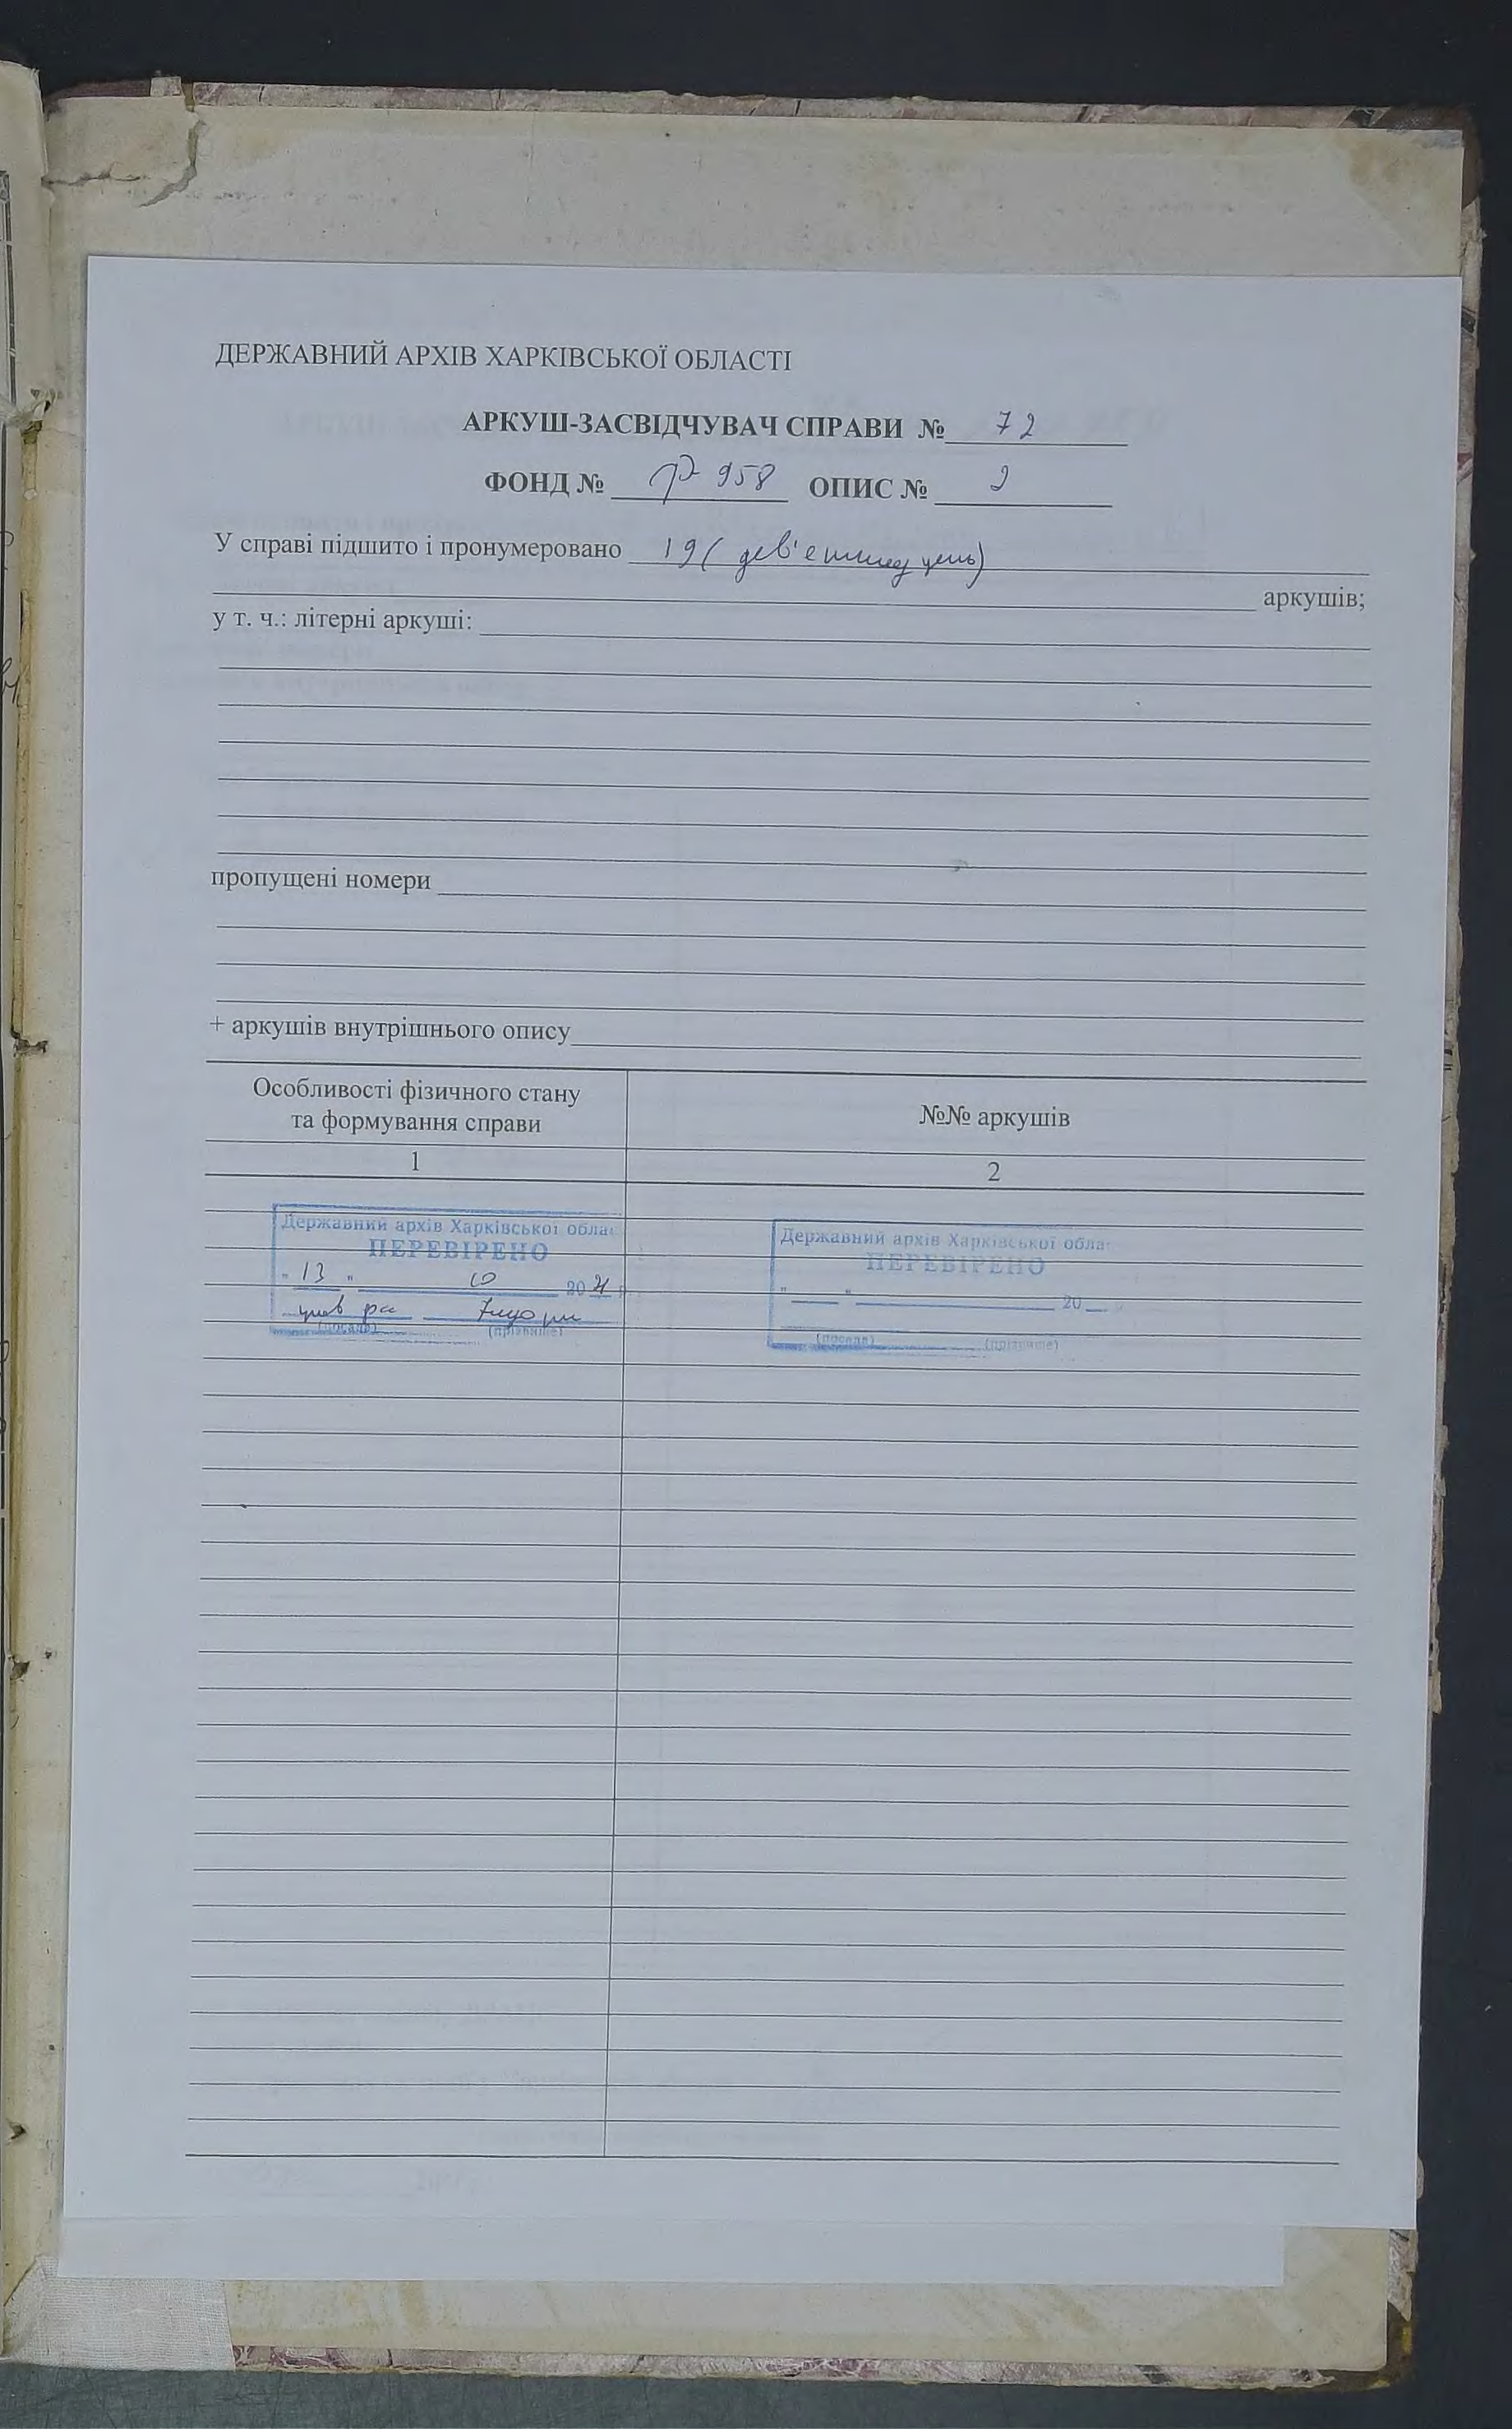 ДЕРЖАВНИЙ АРХІВ ХАРКІВСЬКОЇ ОБЛАСТІ
АРКУШ-ЗАСВІДЧУВАЧ СПРАВИ № 72
ФОНД № Р 958 ОПИС № 2
У справі підшито і пронумеровано 19 (дев'ятнадцять)
аркушів;
у т. ч.: літерні аркуші:
пропущені номери
+ аркушів внутрішнього опису
Особливості фізичного стану
та формування справи
№№ аркушів
1
2
Державний архів Харківської обла
ПЕРЕВІРЕНО
" 13 " 10 2021
(посада) (прізвище)
Державний архів Харківської обла
ПЕРЕВІРЕНО
" " 20
(посада) (прізвище)